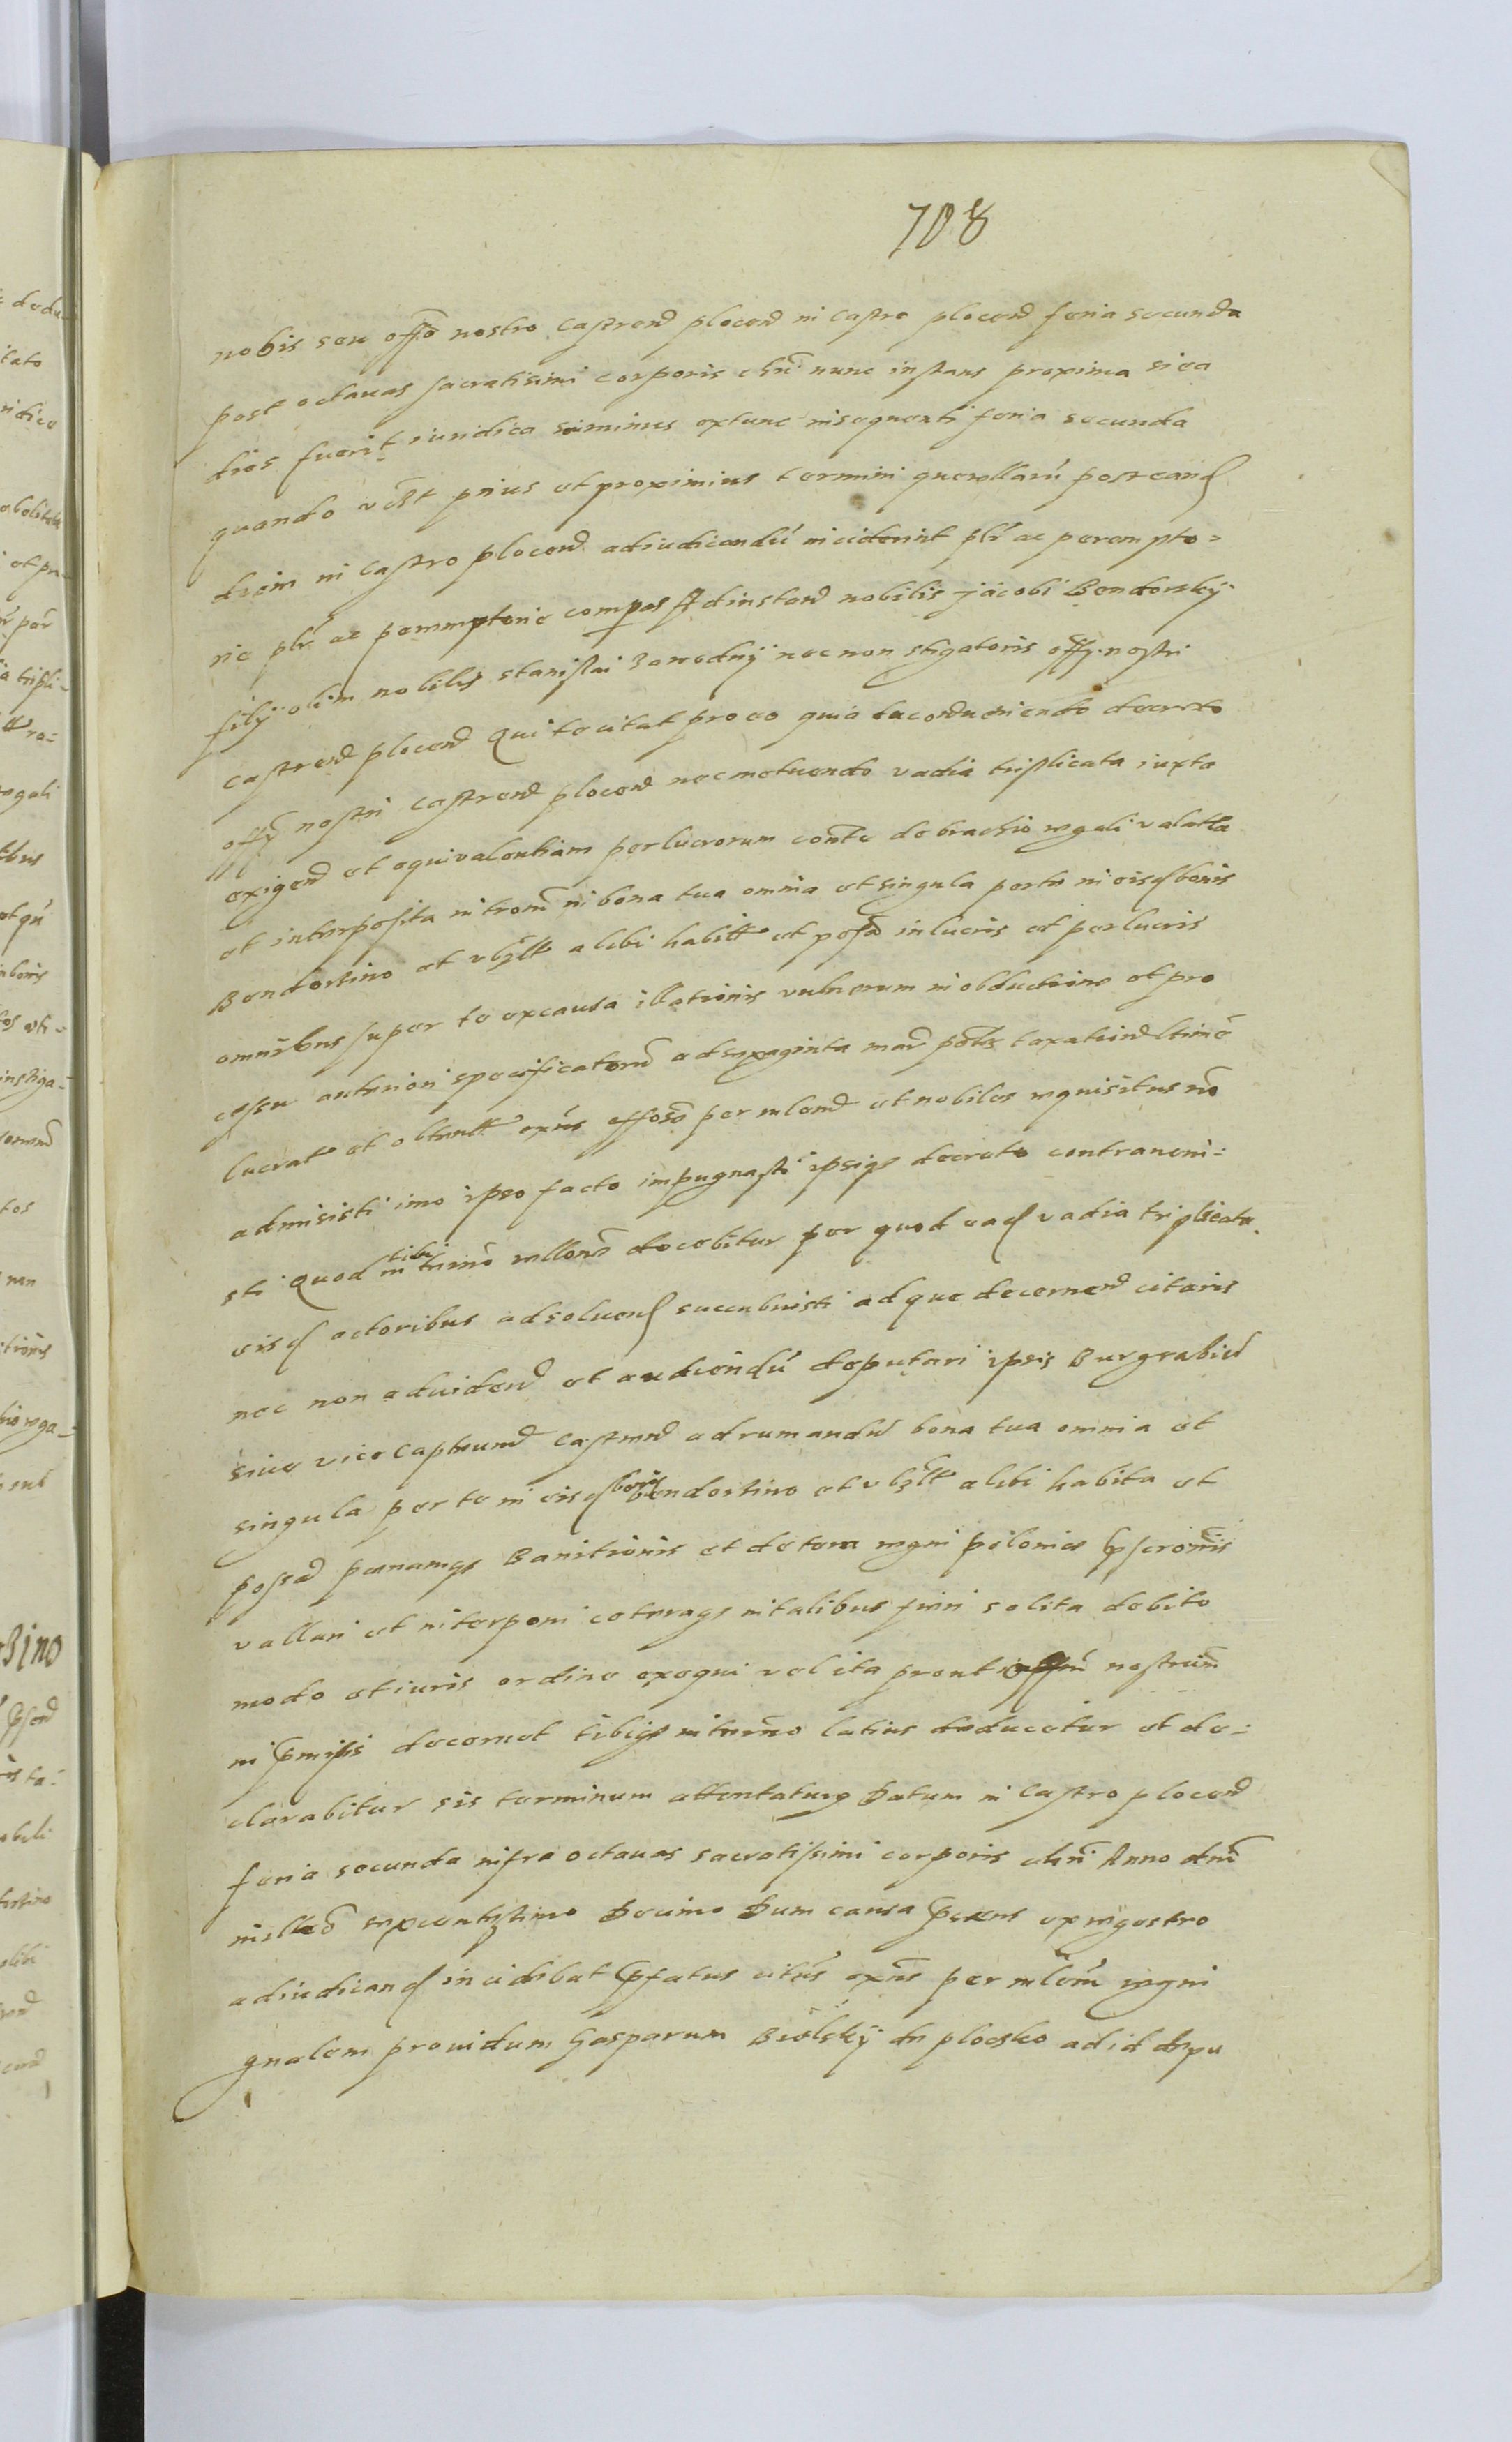 708
nobis seu offo nostro Castren plocen in Castro plocen feria secunda
post octauas sacratisimi corporis chri nunc instans proxima si ea
dies fuerit iuridica siminus extunc insequenti feria secunda
quando vel prius et proximius termini querellaru post eand
diem in Castro plocen adiudicandu inciderint plr ac perempto=
rie plr ac peremptorie compas Ad instan nobilis jacobi Bendorskij
filij olim nobilis stanislai Zawodnij nec non stigatoris offij nostri
Castren plocen Qui te citat pro eo quia tu condueniendo decreto
offij nostri Castren plocen nec metuendo vadia triplicata iuxta
exigen et equiualentiam perlucrorum conte de brachio regali valata
et interposita introm in bona tua omnia et singula per te in eisd bonis
Bendorzino et vblt alibi habitt et possa in lucris et perlucris
omnibus super te ex causa illationis vulnerum in obductione et pro
cessu anteriori specificatoru ad sexaginta mar polo taxation ltimo
lucrate et obtentt exns effoso per mlem et nobiles requisitus no
admisisti imo ipso facto impugnasti ipsiqe decreto contraueni=
sti Quod tibi in termo mellons docebitur per quod ead vadia triplicata
eisd actoribus ad soluend succubuisti ad que decernen citaris
nec non ad viden et audiendu deputari ipsis Burgrabiu
siue vice Capneum Castren ad rumandu bona tua omnia et
singula per te in eisd bonis bendorzino et vblt alibi habita et
possa pænamqe Banitionis et de tera regni poloniæ
vallari et interponi ceteraqe in talibus fieri solita debito
modo et iuris ordine exequi vel ita prout offm nostrum
in pmissis decernet tibiqe in termo latius deducetur et de=
clarabitur sis terminum attentaturg Datum in Castro plocen
feria secunda infra octauas sacratissimi corporis chri Anno dni
milleo sexcentesimo Decimo Dum causa pns ex regestro
adiudicand incidebat pfatus citus exns per mlem regni
gnalem prouidum Gasparum Biolskij de plocsko ad id depu